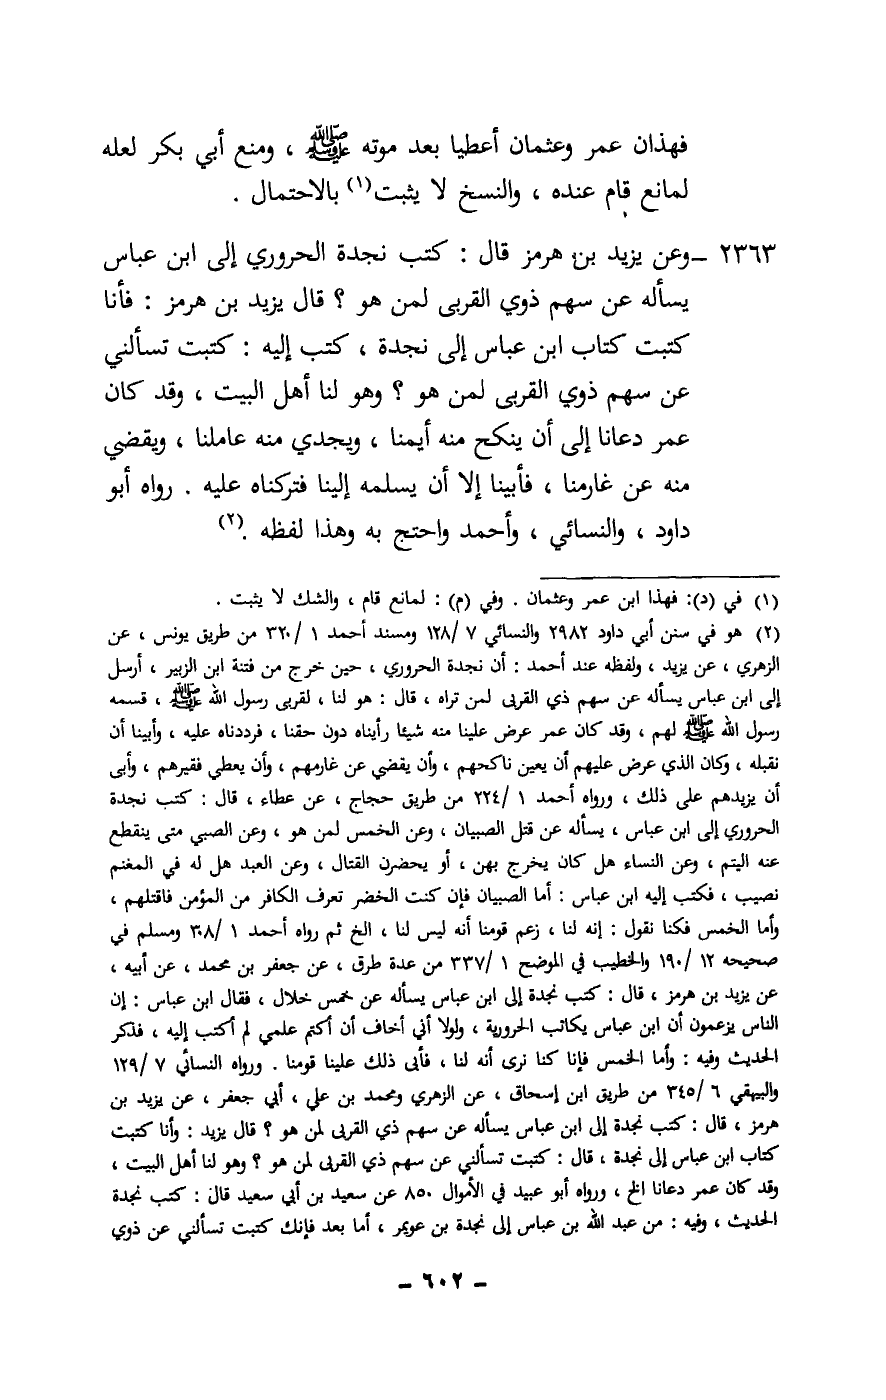 فهذان عمر وعثمان أعطيا بعد موته ﷺ ، ومنع أبي بكر لعله
لمانع قام عنده ، والنسخ لا يثبت(١) بالاحتمال .
٢٣٦٣ ـ وعن يزيد بن هرمز قال : كتب نجدة الحروري إلى ابن عباس
يسأله عن سهم ذوي القربى لمن هو ؟ قال يزيد بن هرمز : فأنا
كتبت كتاب ابن عباس إلى نجدة ، كتب إليه : كتبت تسألني
عن سهم ذوي القربى لمن هو ؟ وهو لنا أهل البيت ، وقد كان
عمر دعانا إلى أن ينكح منه أيمنا ، ويجدي منه عاملنا ، ويقضي
منه عن غارمنا ، فأبينا إلا أن يسلمه إلينا فتركناه عليه . رواه أبو
داود ، والنسائي ، وأحمد واحتج به وهذا لفظه .(٢)
(١) في (د): فهذا ابن عمر وعثمان . وفي (م) : لمانع قام ، والشك لا يثبت .
(٢) هو في سنن أبي داود ٢٩٨٢ والنسائي ٧ /١٢٨ ومسند أحمد ١ /٣٢٠ من طريق يونس ، عن
الزهري ، عن يزيد ، ولفظه عند أحمد : أن نجدة الحروري ، حين خرج من فتنة ابن الزبير ، أرسل
إلى ابن عباس يسأله عن سهم ذي القربى لمن تراه ، قال : هو لنا ، لقربى رسول الله ﷺ ، قسمه
رسول الله ﷺ لهم ، وقد كان عمر عرض علينا منه شيئا رأيناه دون حقنا ، فرددناه عليه ، وأبينا أن
نقبله ، وكان الذي عرض عليهم أن يعين ناكحهم ، وأن يقضي عن غارمهم ، وأن يعطي فقيرهم ، وأبى
أن يزيدهم على ذلك ، ورواه أحمد ١ /٢٢٤ من طريق حجاج ، عن عطاء ، قال : كتب نجدة
الحروري إلى ابن عباس ، يسأله عن قتل الصبيان ، وعن الخمس لمن هو ، وعن الصبي متى ينقطع
عنه اليتم ، وعن النساء هل كان يخرج بهن ، أو يحضرن القتال ، وعن العبد هل له في المغنم
نصيب ، فكتب إليه ابن عباس : أما الصبيان فإن كنت الخضر تعرف الكافر من المؤمن فاقتلهم ،
وأما الخمس فكنا نقول : إنه لنا ، زعم قومنا أنه ليس لنا ، الخ ثم رواه أحمد ١ /٣٠٨ ومسلم في
صحيحه ١٢ /١٩٠ والخطيب في الموضح ١ /٣٣٧ من عدة طرق ، عن جعفر بن محمد ، عن أبيه ،
عن يزيد بن هرمز ، قال : كتب نجدة إلى ابن عباس يسأله عن خمس خلال ، فقال ابن عباس : إن
الناس يزعمون أن ابن عباس يكاتب الحرورية ، ولولا أني أخاف أن أكتم علمي لم أكتب إليه ، فذكر
الحديث وفيه : وأما الخمس فإنا كنا نرى أنه لنا ، فأبى ذلك علينا قومنا . ورواه النسائي ٧ /١٢٩
والبيهقي ٦ /٣٤٥ من طريق ابن إسحاق ، عن الزهري ومحمد بن علي ، أبي جعفر ، عن يزيد بن
هرمز ، قال : كتب نجدة إلى ابن عباس يسأله عن سهم ذي القربى لمن هو ؟ قال يزيد : وأنا كتبت
كتاب ابن عباس إلى نجدة ، قال : كتبت تسألني عن سهم ذي القربى لمن هو ؟ وهو لنا أهل البيت ،
وقد كان عمر دعانا الخ ، ورواه أبو عبيد في الأموال ٨٥٠ عن سعيد بن أبي سعيد قال : كتب نجدة
الحديث ، وفيه : من عبد الله بن عباس إلى نجدة بن عويمر ، أما بعد فإنك كتبت تسألني عن ذوي
ـ ٦٠٢ ـ